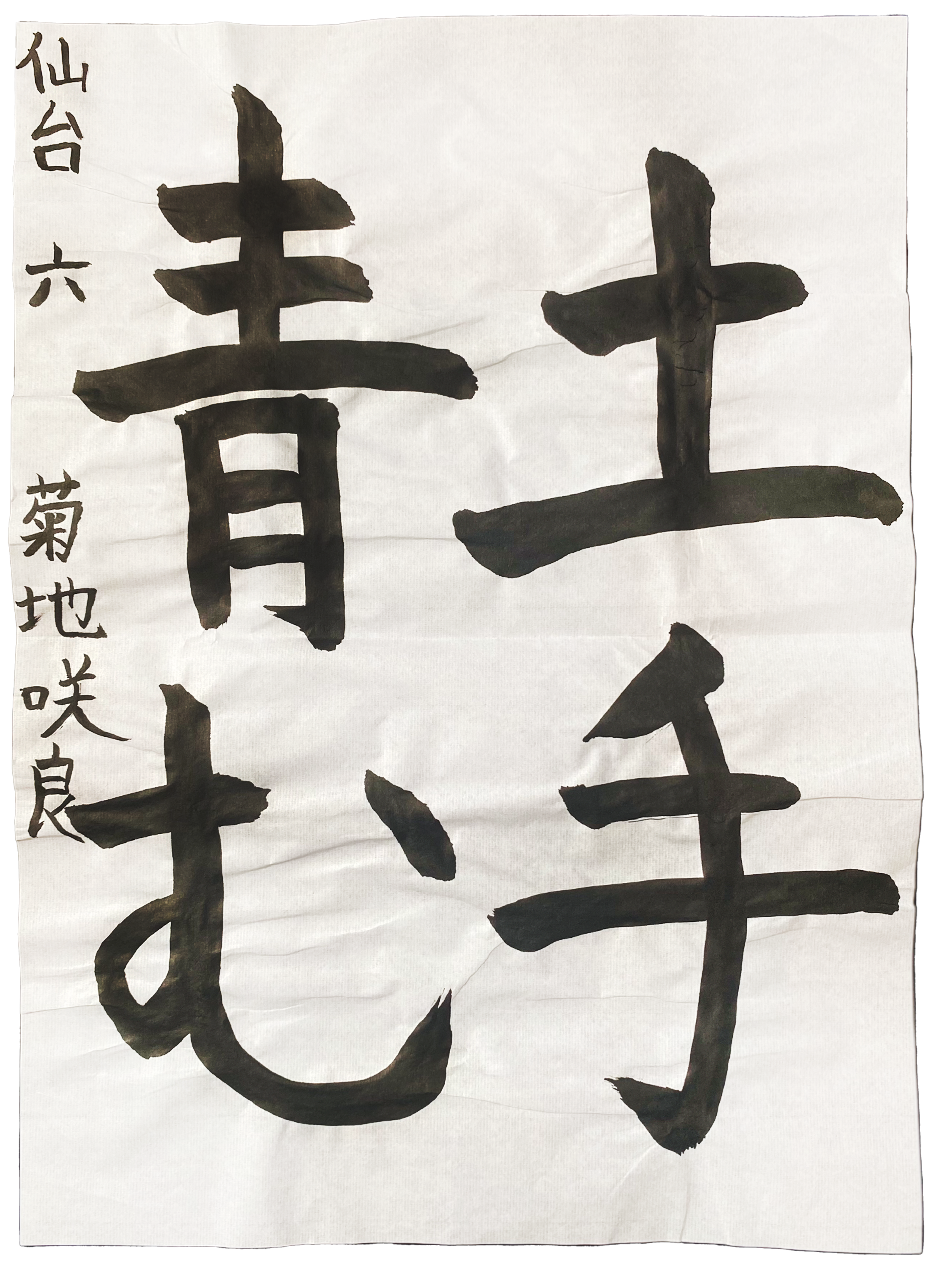 土手
青む
仙台 六 菊地咲良